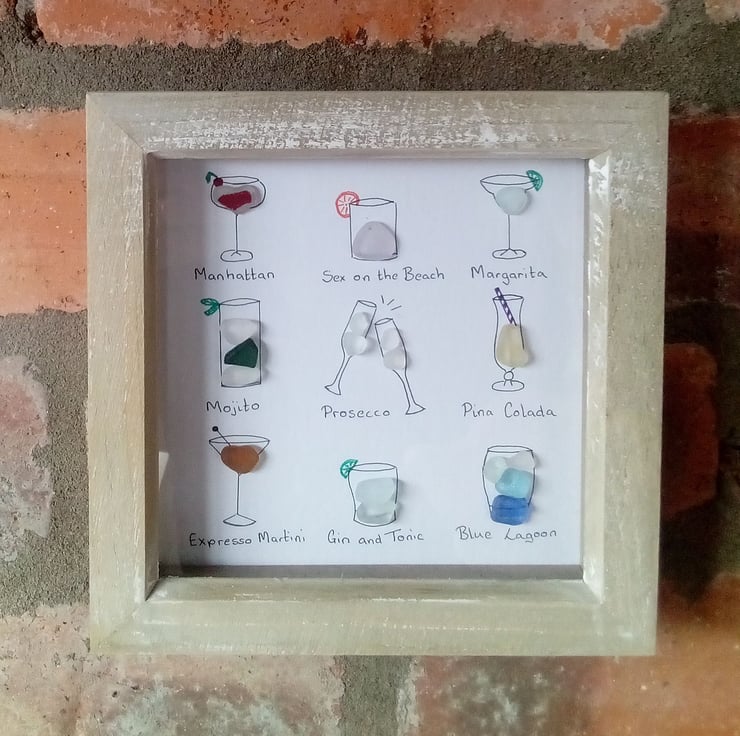 Manhattan
Sex on the Beach
Margarita
Mojito
Prosecco
Pina Colada
Expresso Martini
Gin and Tonic
Blue Lagoon